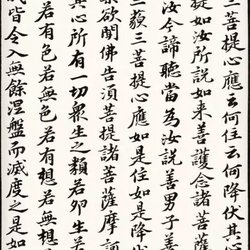 三菩提心應云何住云何降伏其
提如汝所說如来善護念諸菩薩
汝今諦聽當為汝說善男子善
三藐三菩提心應如是住如是降
樂欲聞佛告須菩提諸菩薩摩訶
其心所有一切衆生之類若卵生
若有色若無色若有想若無想
我皆令入無餘涅盤而滅度之如